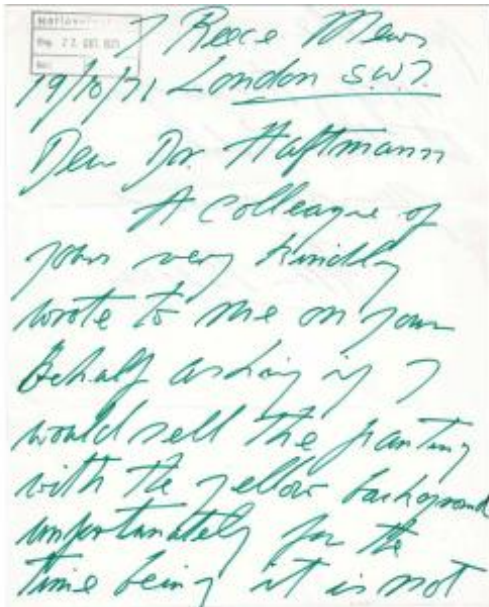 Nationalgalerie
Eing. 22. OKT. 1971
7 Reece Mews
19/10/71 London S.W.7
Dear Dr. Haftmann
A colleague of
yours very kindly
wrote to me on your
behalf asking if I
would sell the painting
with the yellow background
unfortunately for the
time being it is not